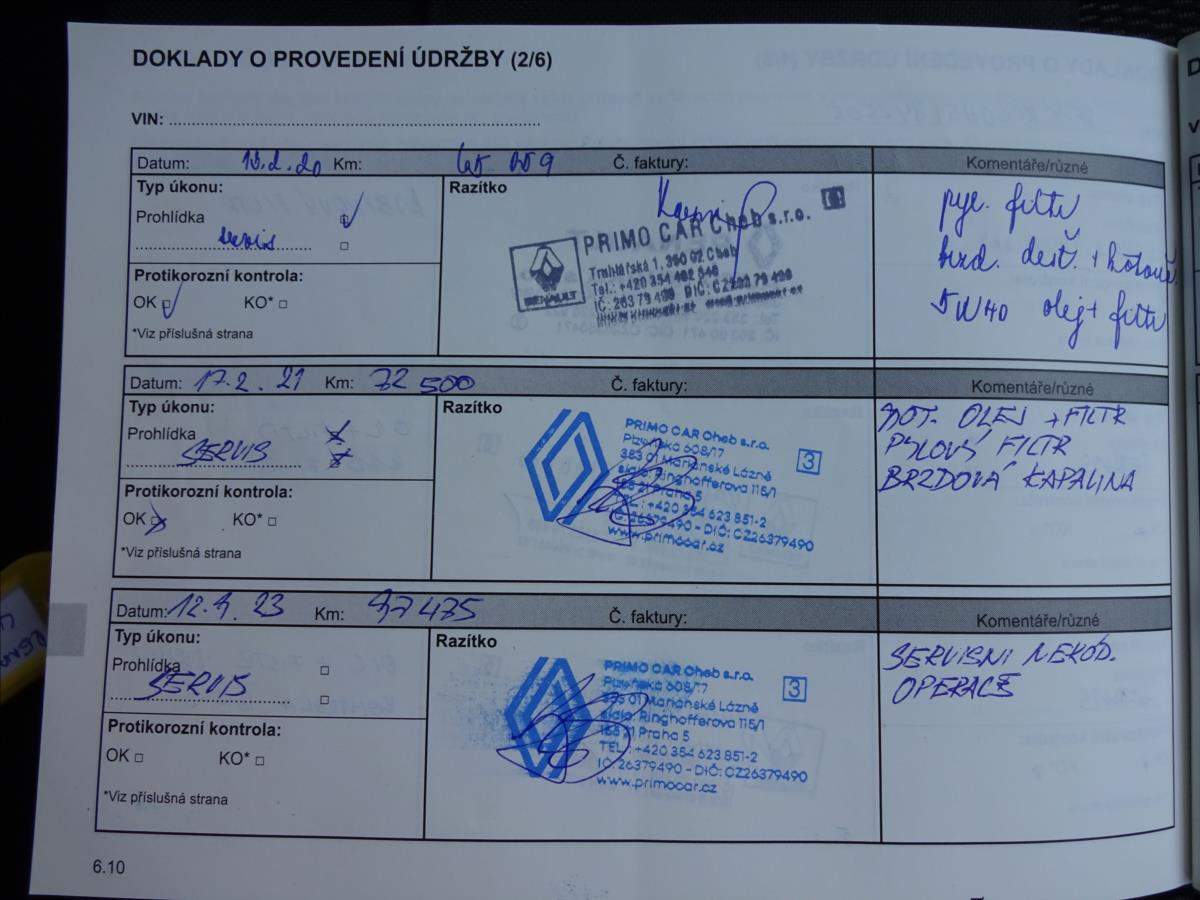 DOKLADY O PROVEDENÍ ÚDRŽBY (2/6)
VIN:
Datum: 13.2.20 Km: Č. faktury: Komentáře/různé
Typ úkonu:
Prohlídka
servis
Protikorozní kontrola:
OK KO*
*Viz příslušná strana
Razítko
PRIMO CAR Cheb s.r.o.
Truhlářská 1, 350 02 Cheb
Tel.: +420 354
IČ: 263 79 490 DIČ: CZ263 79 490
RENAULT
pyl. filtr
brzd. dest. + kotouče
5W40 olej + filtr
Datum: 17.2.21 Km: 72 500 Č. faktury: Komentáře/různé
Typ úkonu:
Prohlídka
SERVIS
Protikorozní kontrola:
OK KO*
*Viz příslušná strana
Razítko
PRIMO CAR Cheb s.r.o.
Plzeňská 608/17
353 01 Mariánské Lázně
sídlo: Ringhofferova 115/1
155 21 Praha 5
TEL.: +420 354 623 851-2
IČ: 26379490 - DIČ: CZ26379490
www.primocar.cz
3
MOT. OLEJ + FILTR
PYLOVÝ FILTR
BRZDOVÁ KAPALINA
Datum: 12.4.23 Km: 97475 Č. faktury: Komentáře/různé
Typ úkonu:
Prohlídka
SERVIS
Protikorozní kontrola:
OK KO*
*Viz příslušná strana
Razítko
PRIMO CAR Cheb s.r.o.
Plzeňská 608/17
353 01 Mariánské Lázně
sídlo: Ringhofferova 115/1
155 21 Praha 5
TEL.: +420 354 623 851-2
IČ: 26379490 - DIČ: CZ26379490
www.primocar.cz
3
SERVISNÍ NEKÓD.
OPERACE
6.10